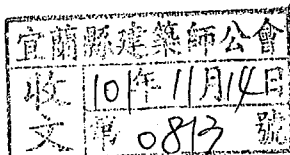 宜蘭縣建築師公會
收 101年11月14日
文 第 0813 號